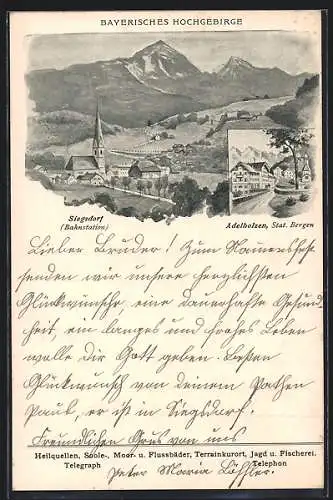 BAYERISCHES HOCHGEBIRGE
Siegsdorf
(Bahnstation)
Adelholzen, Stat. Bergen
Lieber Bruder! Zum Namensfeste
senden wir unsere herzlichsten
Glückwünsche, eine dauerhafte Gesund
heit, ein langes und frohes Leben
wolle Dir Gott geben. Besten
Glückwunsch von deinem Pathen
Paul, er ist in Siegsdorf.
Freundlichen Gruss von uns
Heilquellen, Soole-, Moor- u. Flussbäder, Terrainkurort, Jagd u. Fischerei.
Telegraph
Telephon
Peter Maria